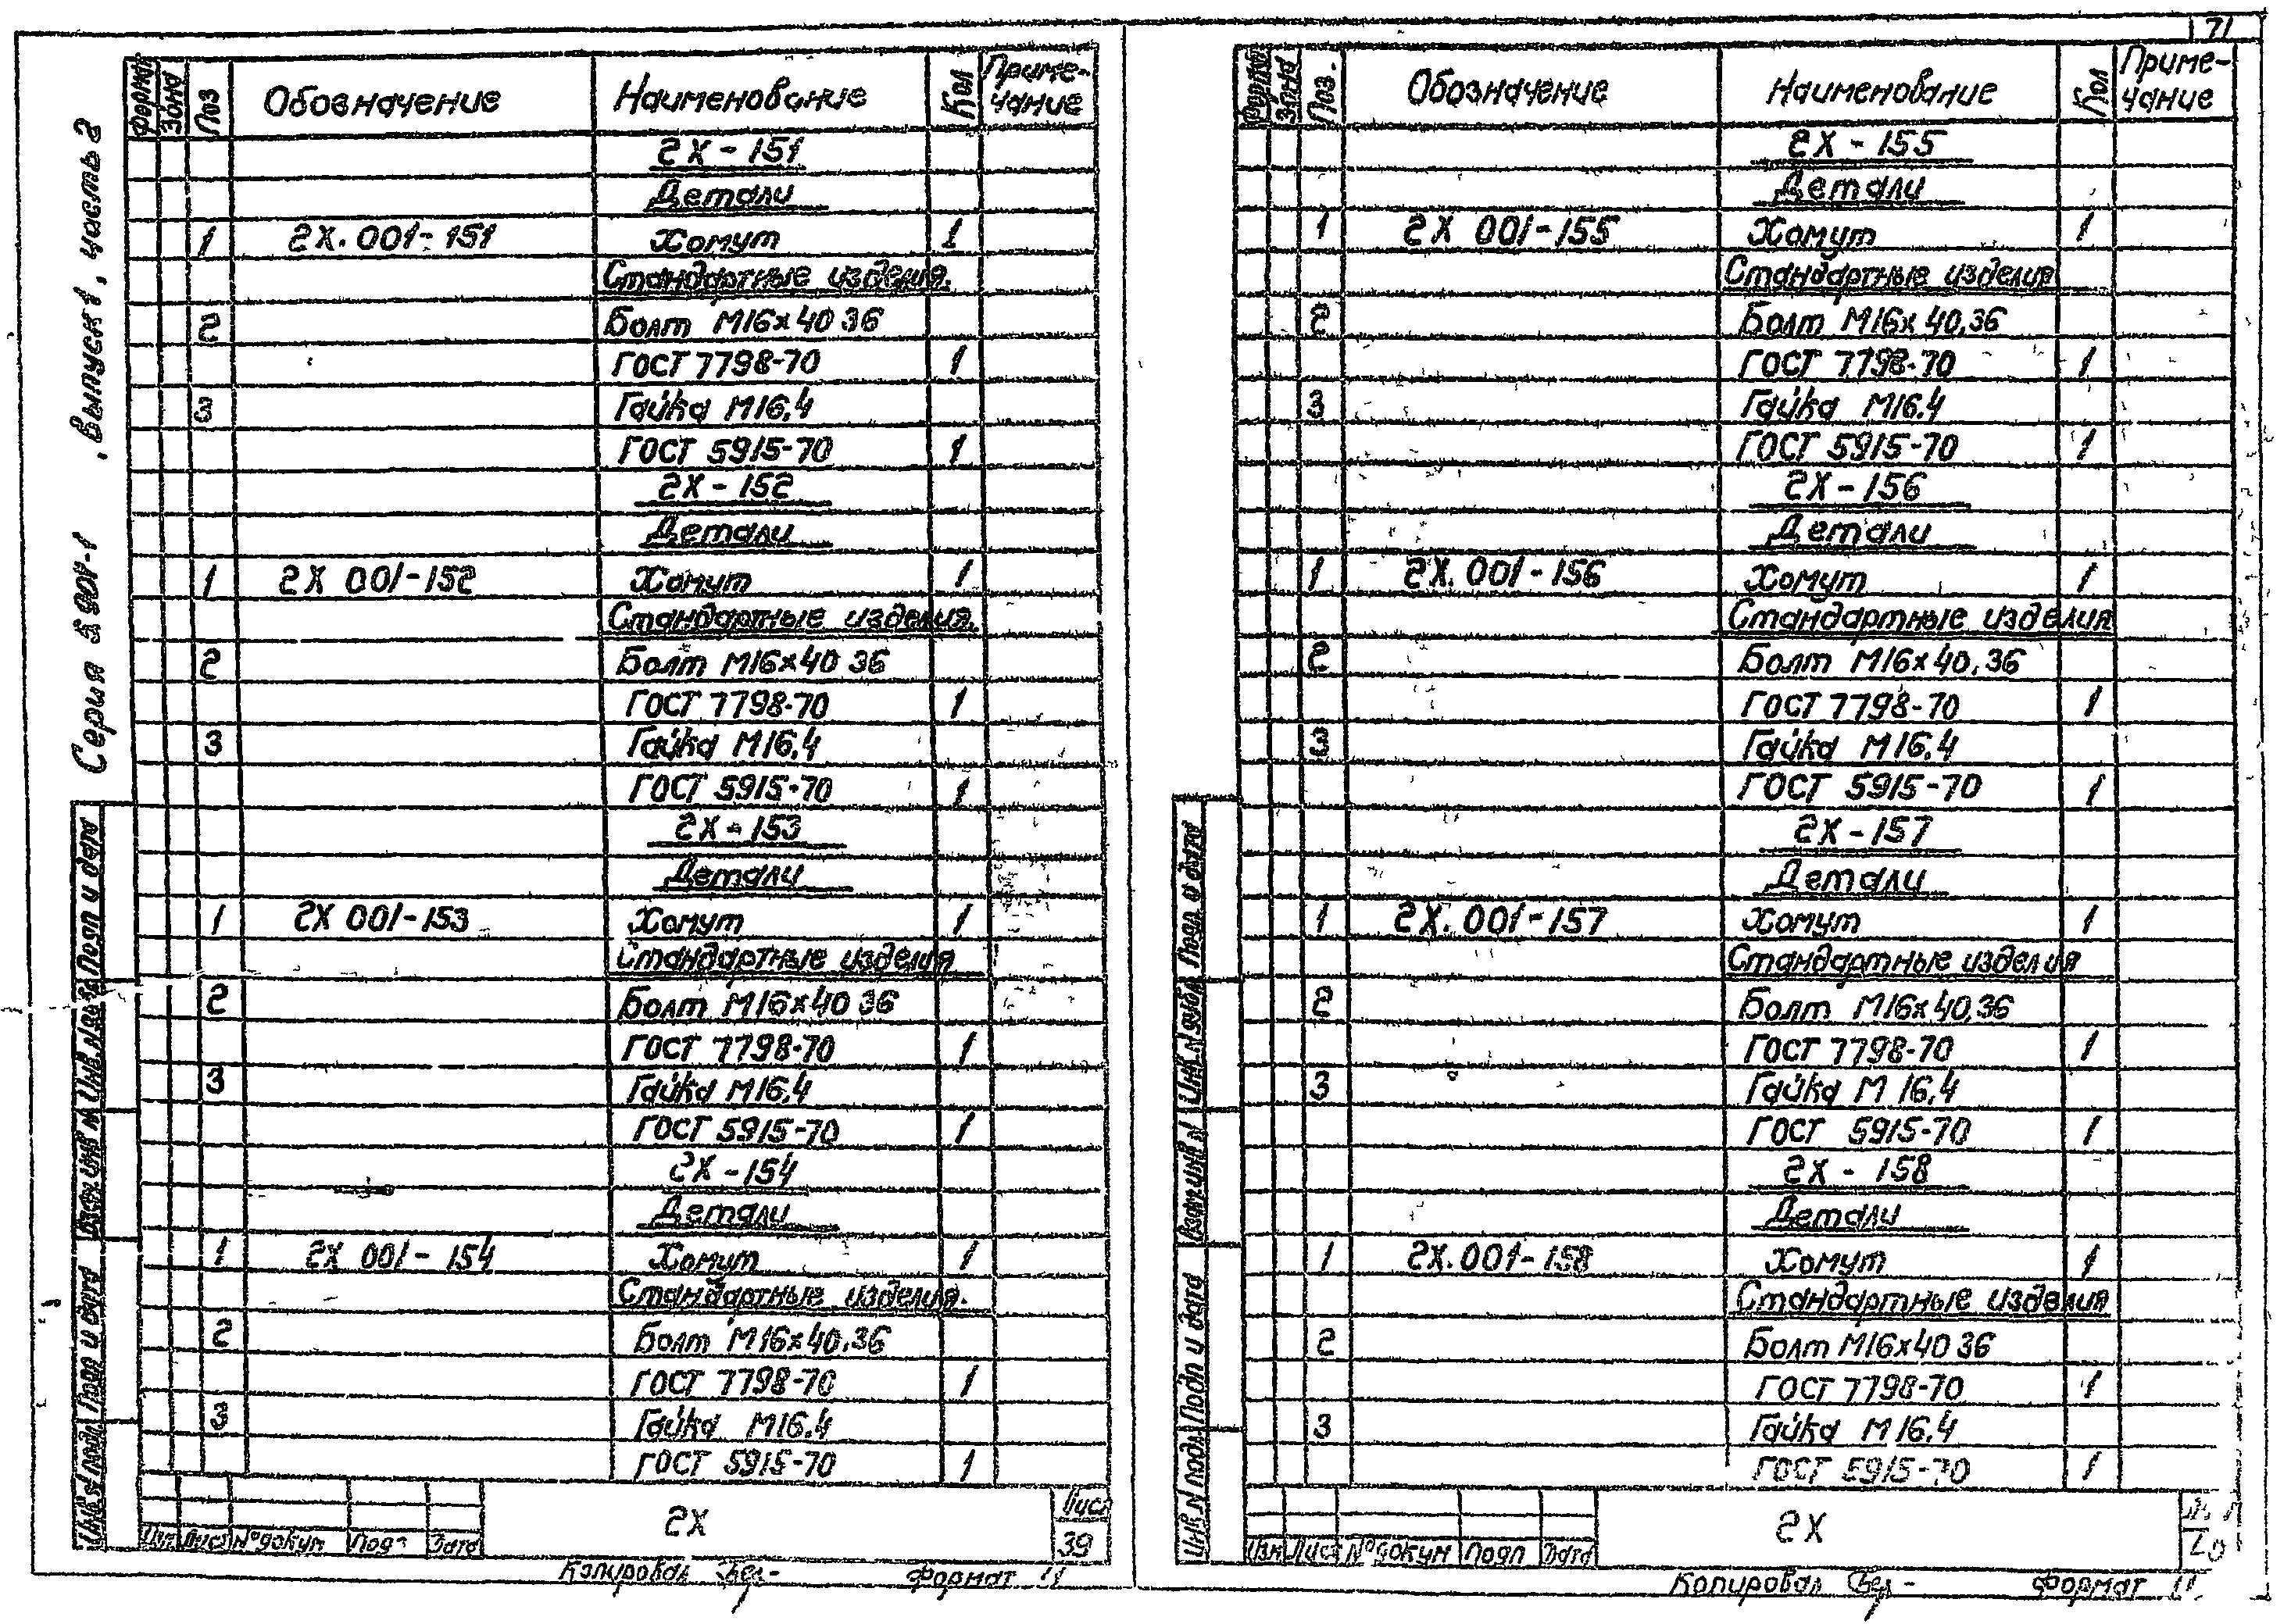 71
Серия 5.901-1 . Выпуск 1, часть 2
Формат Зона Поз Обозначение Наименование Кол Приме-
чание
2Х - 151
Детали
1 2Х. 001 - 151 Хомут 1
Стандартные изделия.
2 Болт М16х40 36
ГОСТ 7798-70 1
3 Гайка М16.4
ГОСТ 5915-70 1
2Х - 152
Детали
1 2Х 001 - 152 Хомут 1
Стандартные изделия.
2 Болт М16х40 36
ГОСТ 7798-70 1
3 Гайка М16.4
ГОСТ 5915-70 1
2Х - 153
Детали
1 2Х 001 - 153 Хомут 1
Стандартные изделия
2 Болт М16х40 36
ГОСТ 7798-70 1
3 Гайка М16.4
ГОСТ 5915-70 1
2Х - 154
Детали
1 2Х 001 - 154 Хомут 1
Стандартные изделия.
2 Болт М16х40.36
ГОСТ 7798-70 1
3 Гайка М16.4
ГОСТ 5915-70 1
Инв № подл. Подп и дата Взам инв № Инв. № дубл Подп и дата
Изм Лист № докум Подп Дата
2Х
Лист
39
Копировал Формат 11
Формат Зона Поз. Обозначение Наименование Кол Приме-
чание
2Х - 155
Детали
1 2Х 001 - 155 Хомут 1
Стандартные изделия
2 Болт М16х 40.36
ГОСТ 7798-70 1
3 Гайка М16.4
ГОСТ 5915-70 1
2Х - 156
Детали
1 2Х. 001 - 156 Хомут 1
Стандартные изделия
2 Болт М16х40.36
ГОСТ 7798-70 1
3 Гайка М16.4
ГОСТ 5915-70 1
2Х - 157
Детали
1 2Х. 001 - 157 Хомут 1
Стандартные изделия
2 Болт М16х40.36
ГОСТ 7798-70 1
3 Гайка М 16.4
ГОСТ 5915-70 1
2Х - 158
Детали
1 2Х. 001 - 158 Хомут 1
Стандартные изделия
2 Болт М16х40 36
ГОСТ 7798-70 1
3 Гайка М16.4
ГОСТ 5915-70 1
Инв № подл. Подп и дата Взам инв № Инв № дубл Подп и дата
Изм Лист № докум Подп Дата
2Х
Копировал Формат 11